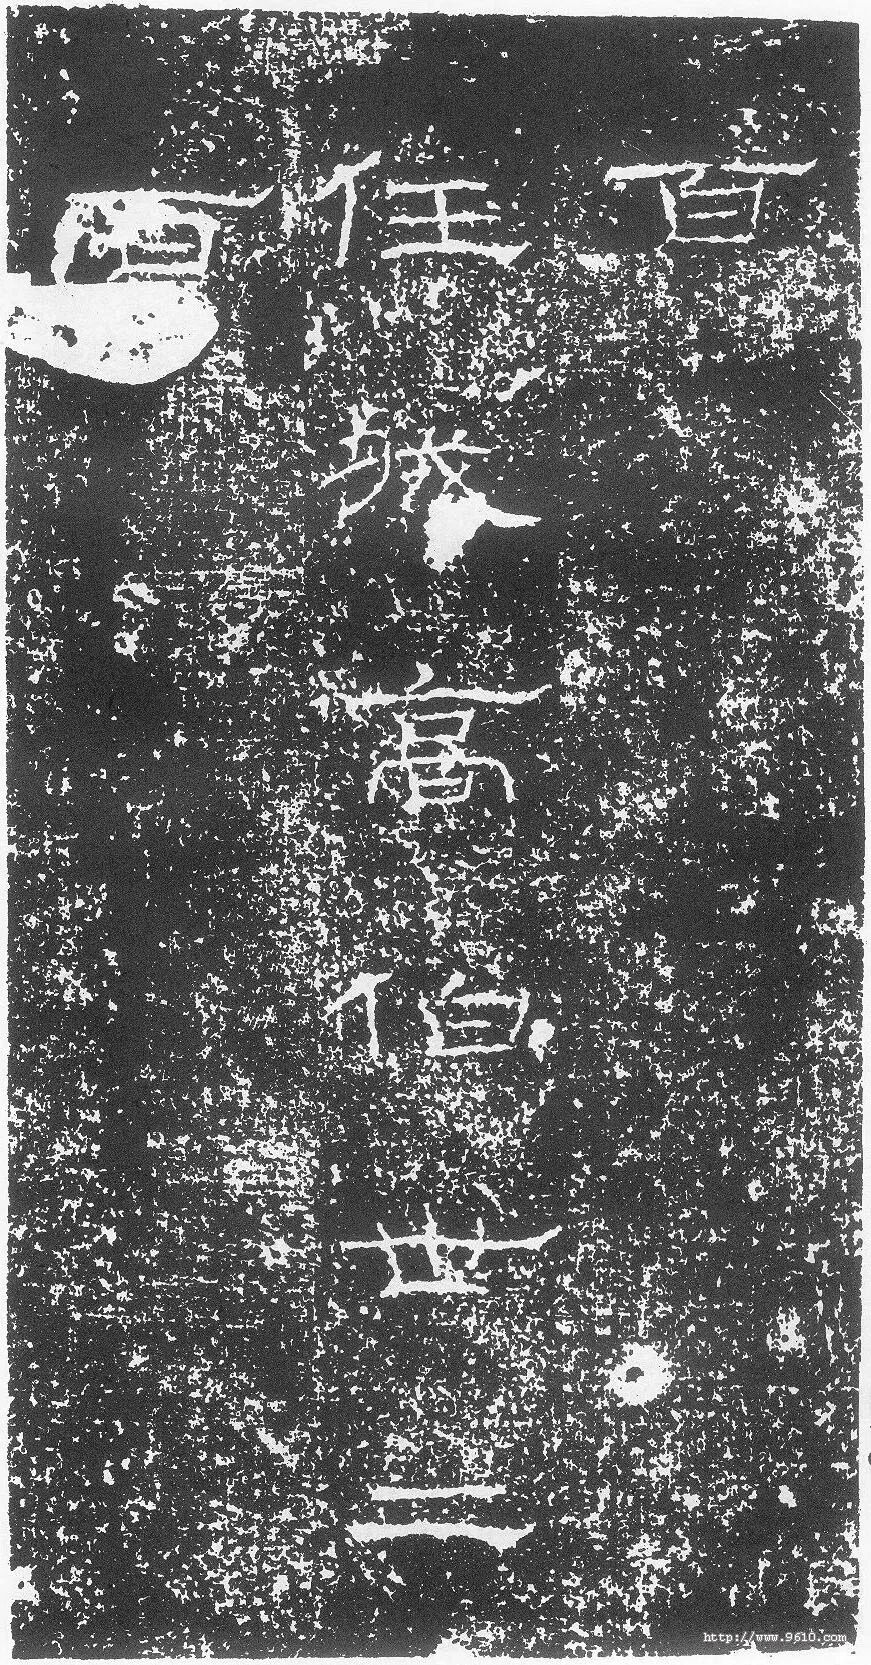 百
任城高伯世二
百
http://www.9610.com